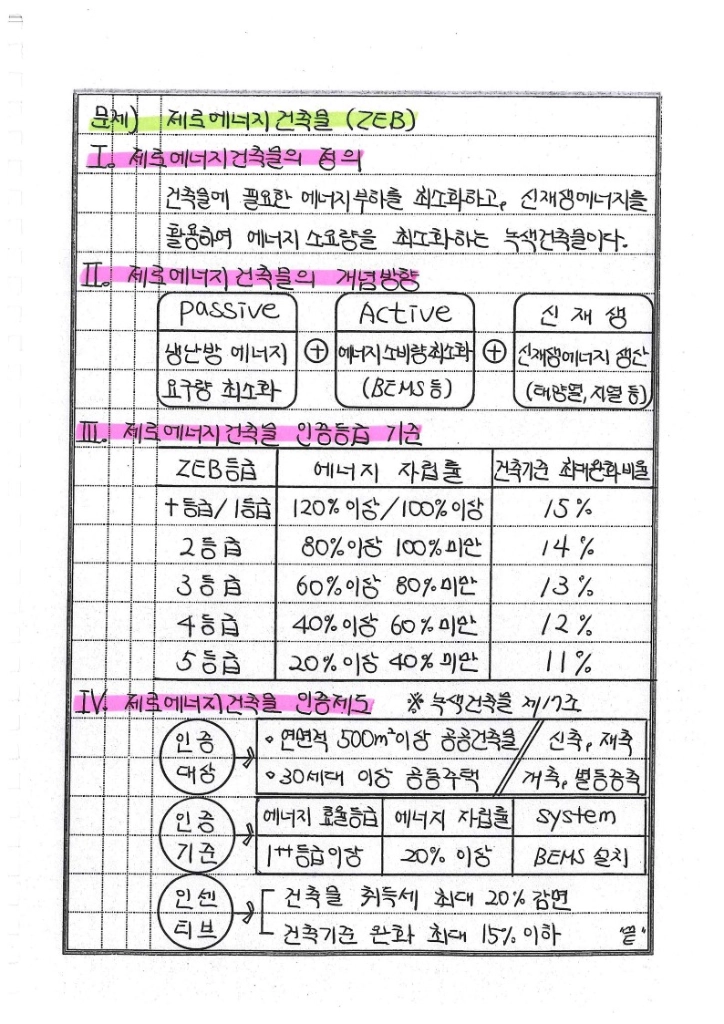 문제) 제로에너지건축물 (ZEB)
I. 제로에너지건축물의 정의
건축물에 필요한 에너지부하를 최소화하고, 신재생에너지를
활용하여 에너지 소요량을 최소화하는 녹색건축물이다.
II. 제로에너지건축물의 개념방향
passive
냉난방 에너지
요구량 최소화
⊕
Active
에너지소비량최소화
(BEMS 등)
⊕
신 재 생
신재생에너지 생산
(태양열, 지열 등)
III. 제로에너지건축물 인증등급 기준
ZEB등급 에너지 자립률 건축기준 최대완화비율
+등급/1등급 120%이상/100%이상 15%
2등급 80%이상 100%미만 14%
3등급 60%이상 80%미만 13%
4등급 40%이상 60%미만 12%
5등급 20%이상 40%미만 11%
IV. 제로에너지건축물 인증제도 ※ 녹색건축물 제17조
인증
대상
• 연면적 500m²이상 공공건축물 신축, 재축
• 30세대 이상 공동주택 개축, 별동증축
인증
기준
에너지 효율등급 에너지 자립률 system
1++등급이상 20% 이상 BEMS 설치
인센
티브
건축물 취득세 최대 20% 감면
건축기준 완화 최대 15%이하 "끝"